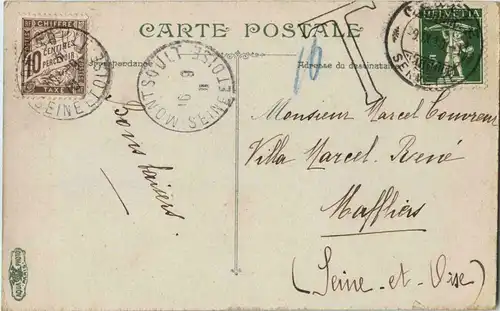 CARTE POSTALE
Correspondance
Adresse du destinataire
CHIFFRE
10 CENTIMES
À PERCEVOIR
TAXE
SEINE ET OISE
MONTSOULT
SEINE ET OISE
HELVETIA
T
10
Bons baisers
Monsieur Marcel
Villa Marcel-René
Maffliers
(Seine-et-Oise)
AQUA PHOTO